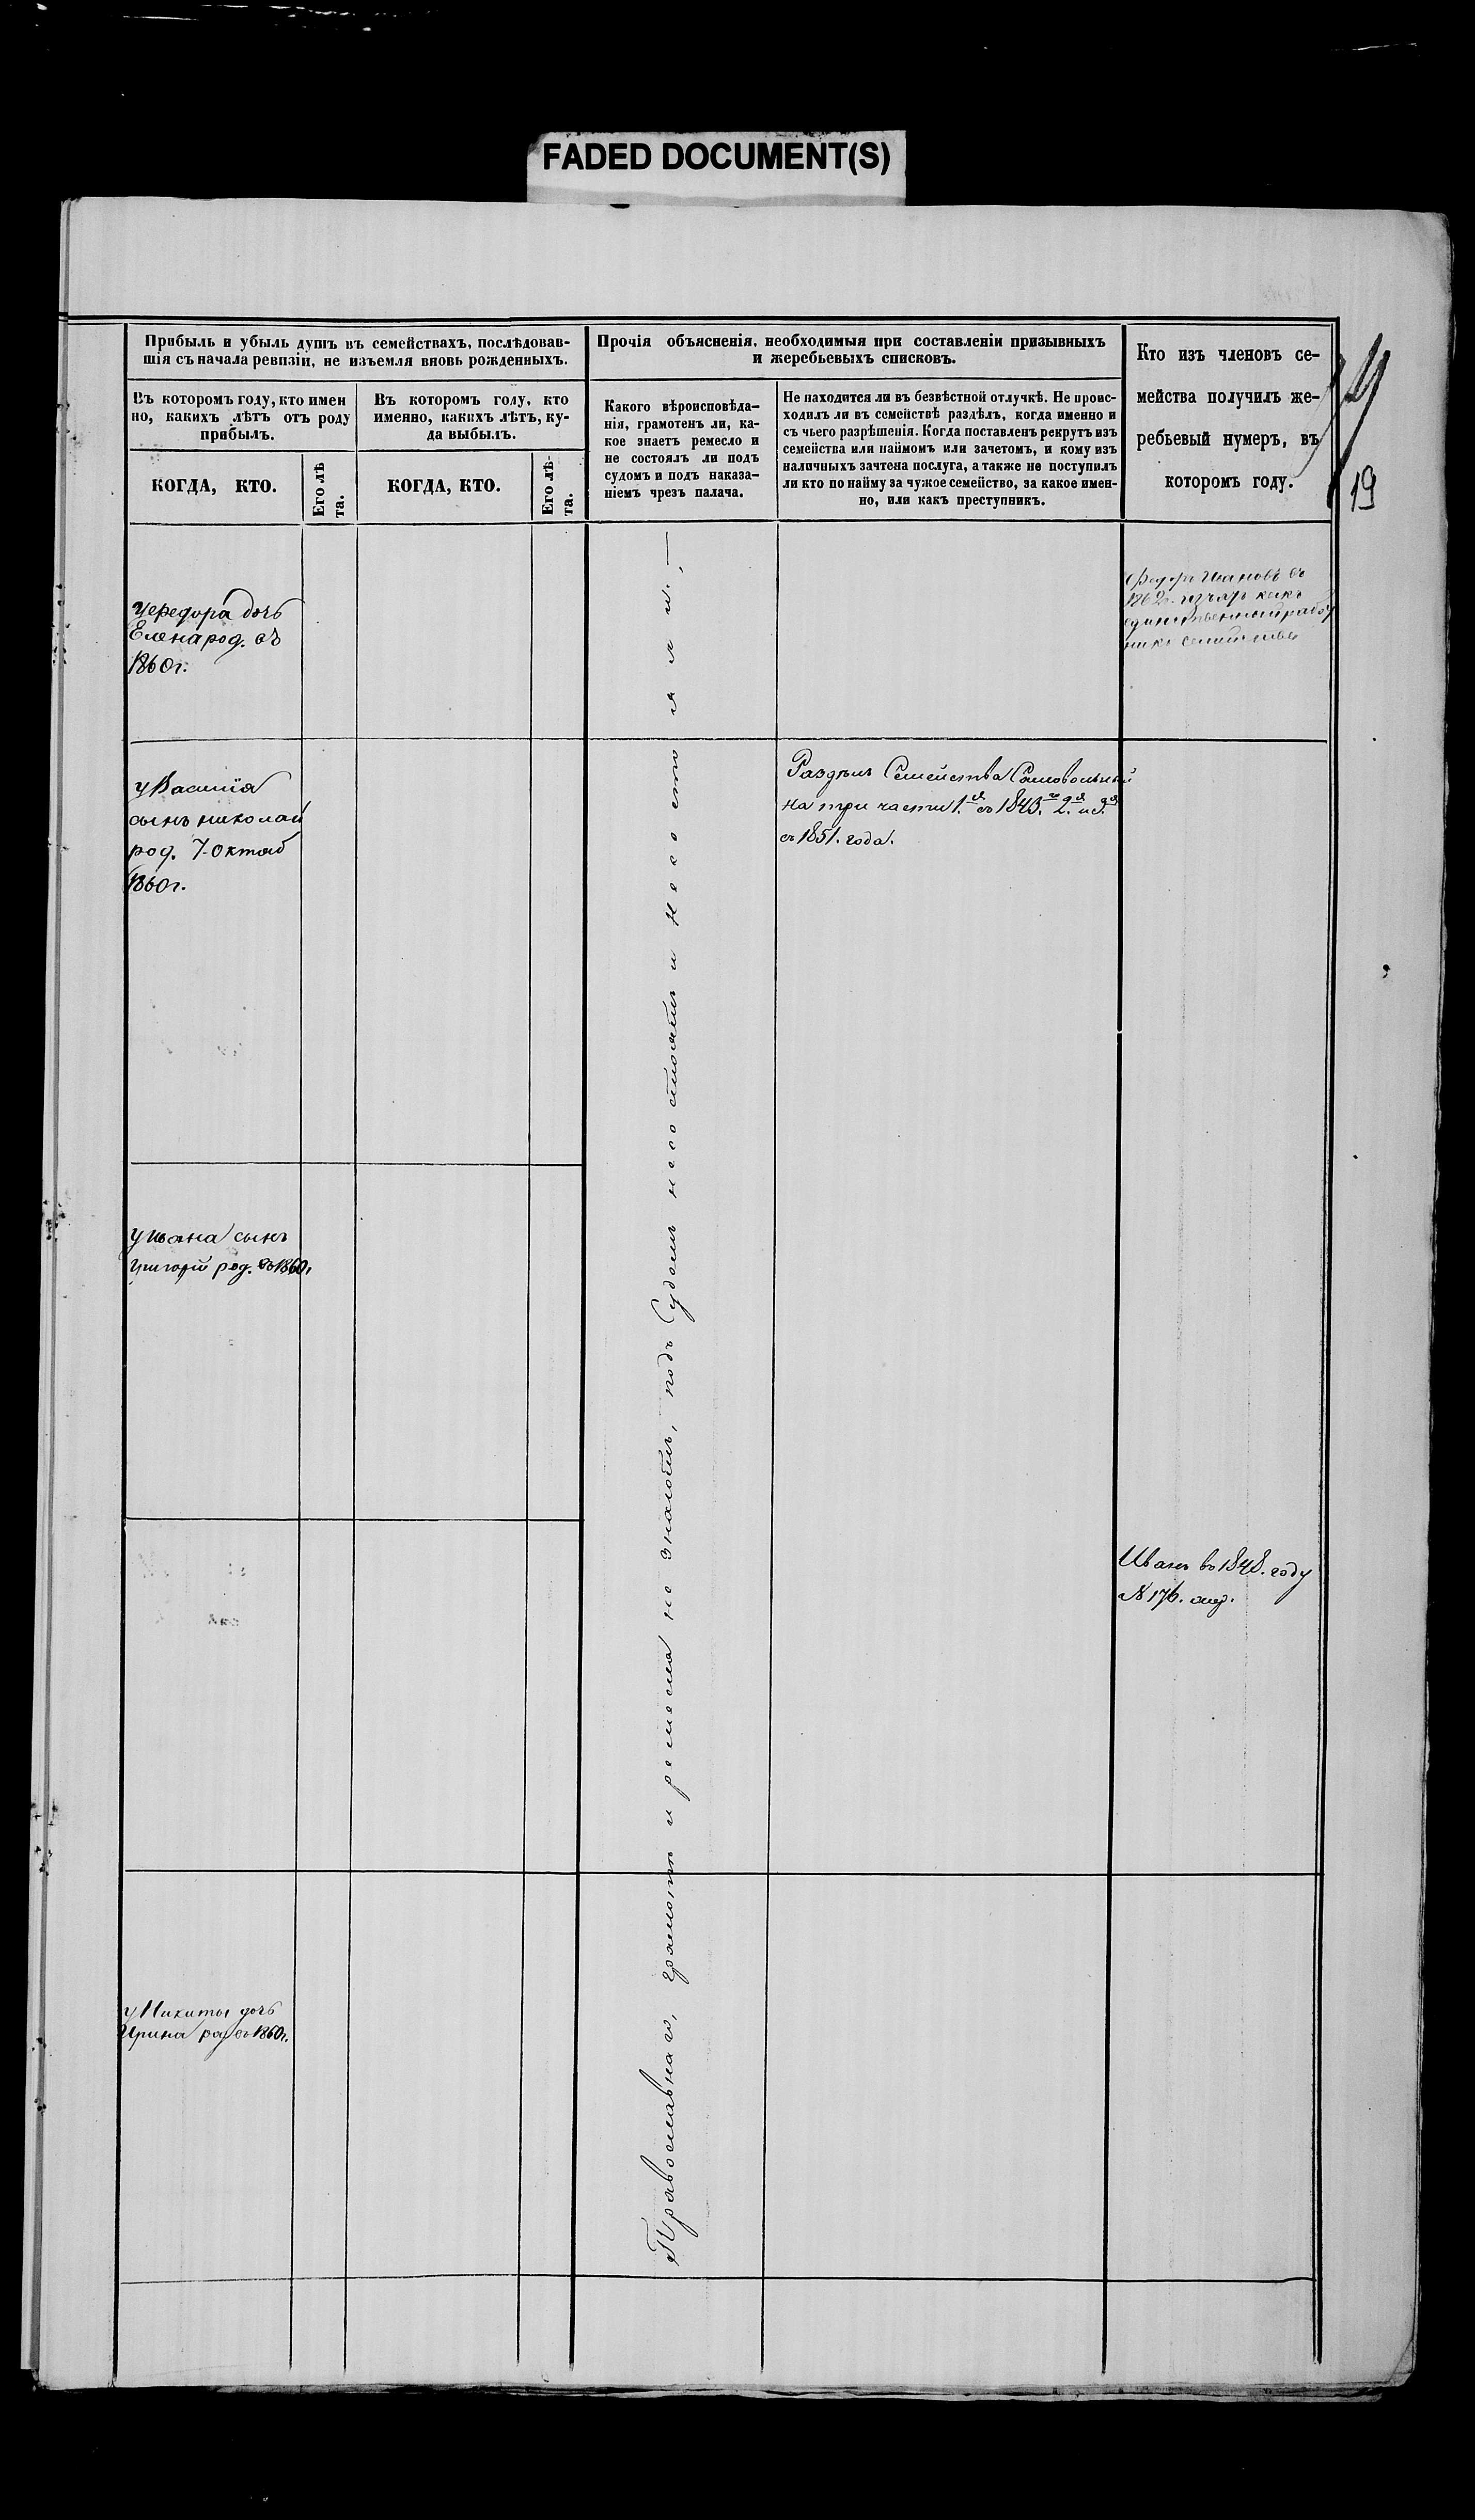 FADED DOCUMENT(S)
Прибыль и убыль душъ въ семействахъ, послѣдовав-
шія съ начала ревизіи, не изъемля вновь рожденныхъ.
Прочія объясненія, необходимыя при составленіи призывныхъ
и жеребьевыхъ списковъ.
Кто изъ членовъ се-
мейства получилъ же-
ребьевый нумеръ, въ
которомъ году.
19
Въ которомъ году, кто имен
но, какихъ лѣтъ отъ роду
прибылъ.
Въ которомъ году, кто
именно, какихъ лѣтъ, ку-
да выбылъ.
Какого вѣроисповѣда-
нія, грамотенъ ли, ка-
кое знаетъ ремесло и
не состоялъ ли подъ
судомъ и подъ наказа-
ніемъ чрезъ палача.
Не находится ли въ безвѣстной отлучкѣ. Не проис-
ходилъ ли въ семействѣ раздѣлъ, когда именно и
съ чьего разрѣшенія. Когда поставленъ рекрутъ изъ
семейства или наймомъ или зачетомъ, и кому изъ
наличныхъ зачтена послуга, а также не поступилъ
ли кто по найму за чужое семейство, за какое имен-
но, или какъ преступникъ.
КОГДА, КТО.
Его лѣ
та.
КОГДА, КТО.
Его лѣ-
та.
у федора дочь
Елена род. въ
1860г.
Федоръ Ивановъ въ
1862г. какъ
единственный работ
никъ семейства
у Василія
сынъ николай
род. 7 октяб
1860г.
Раздѣлъ Семейства Самовольный
на три части 1.я съ 1843.го 2.я и 3.я
съ 1851. года.
у ивана сынъ
григорій род. въ 1860г
Иванъ въ 1848. году
№ 176.
у Никиты дочь
Ирина род въ 1860г.
Православнаго, грамотѣ и ремесла не знаютъ, подъ Судомъ несостоятъ и несостояли. —